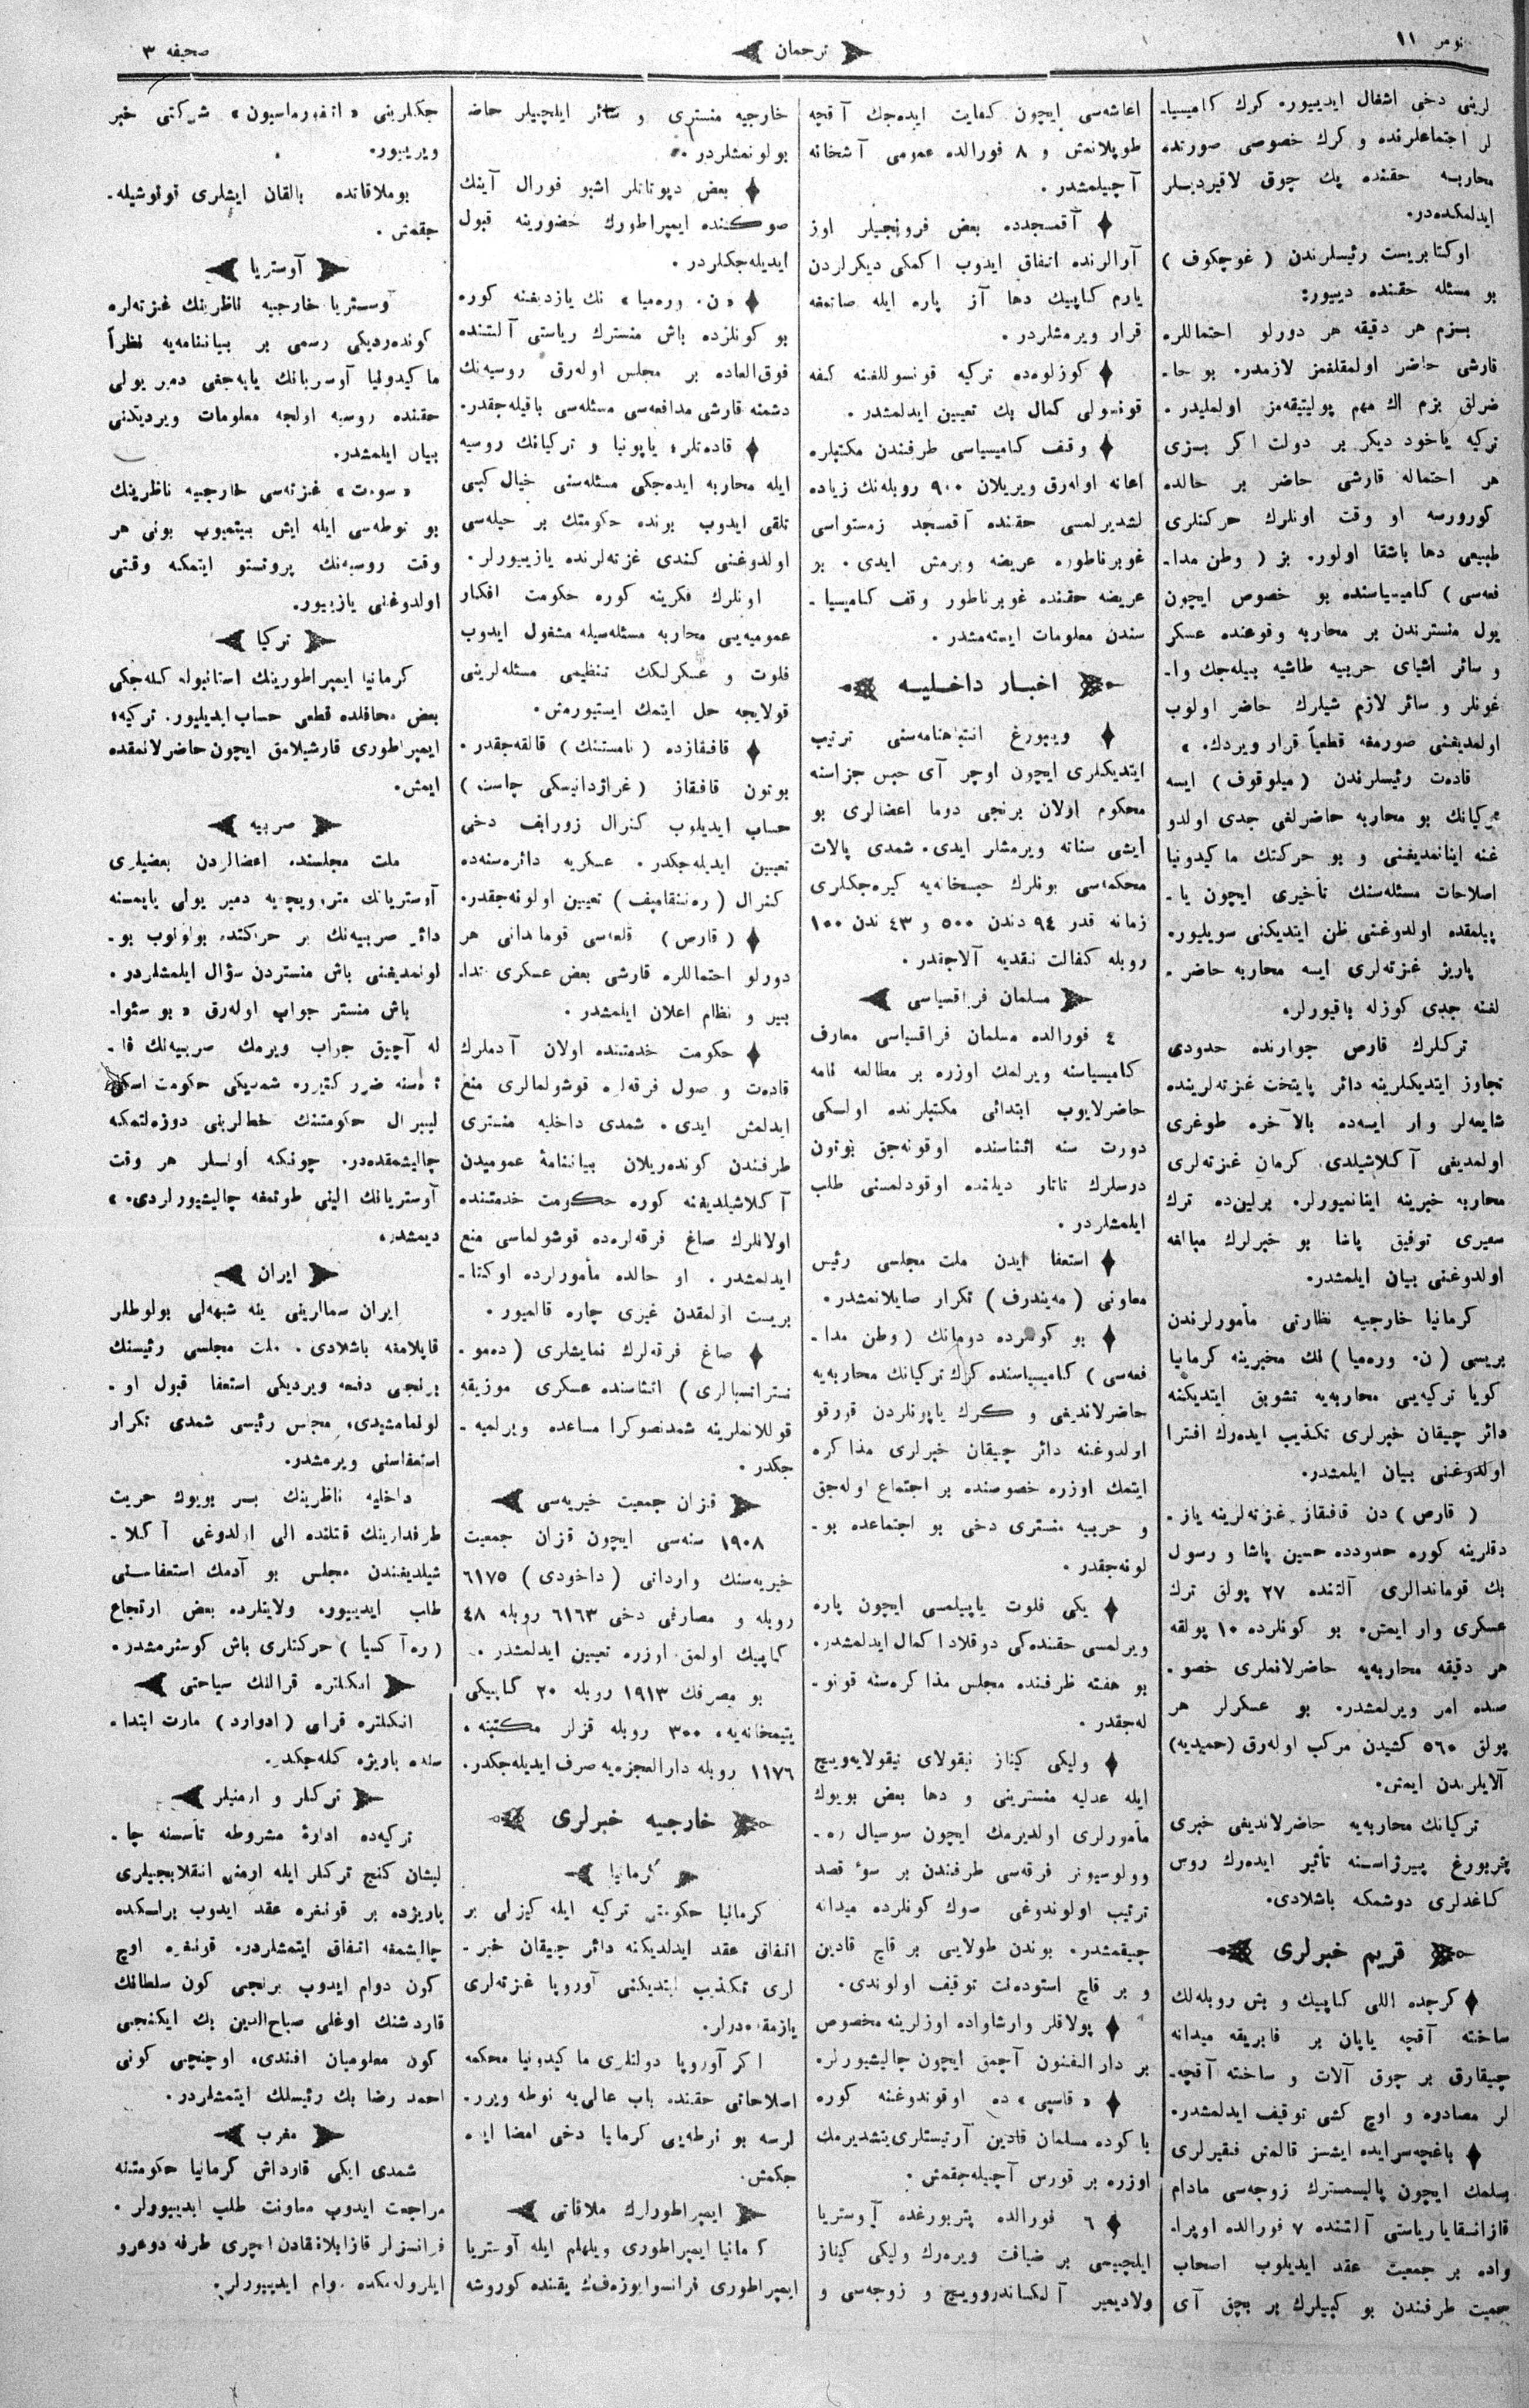 نومر ١١
ترجمان
صحیفه ٣
لرینی دخی اشغال ایدییور. كرك كامیسیا-
لر اجتماعلرنده و كرك خصوصی صورتده
محاربه حقنده پك چوق لاقیردیلر
ایدلمكده‌در.
اوكتابریست رئیسلرندن ( غوچكوف )
بو مسئله حقنده دییور:
بزم هر دقیقه هر دورلو احتماللره
قارشی حاضر اولمقلغمز لازمدر. بو حا-
ضرلق بزم اك مهم پولیتیقه‌مز اولملیدر.
تركیه یاخود دیكر بر دولت اكر بزی
هر احتماله قارشی حاضر بر حالده
كورورسه او وقت اونلرك حركتلری
طبیعی دها باشقا اولور. بز ( وطن مدا-
فعه‌سی ) كامیسیاسنده بو خصوص ایچون
یول منسترندن بر محاربه وقوعنده عسكر
و سائر اشیای حربیه طاشیه بیله‌جك وا-
غونلر و سائر لازم شیلرك حاضر اولوب
اولمدیغنی صورمغه قطعیاً قرار ویردك. »
قادەت رئیسلرندن ( میلوقوف ) ایسه
تركیانك بو محاربه حاضرلغی جدی اولدو
غنه اینانمدیغنی و بو حركتك ماكیدونیا
اصلاحات مسئله‌سنك تأخیری ایچون یا-
پیلمقده اولدوغنی ظن ایتدیكنی سویلیور.
پاریز غزته‌لری ایسه محاربه حاضر-
لغنه جدی كوزله باقیورلر.
تركلرك قارص جوارنده حدودی
تجاوز ایتدیكلرینه دائر پایتخت غزته‌لرینده
شایعه‌لر وار ایسه‌ده بالآخره طوغری
اولمدیغی آكلاشیلدی. كرمان غزته‌لری
محاربه خبرینه اینانمیورلر. برلین‌ده ترك
سفیری توفیق پاشا بو خبرلرك مبالغه
اولدوغنی بیان ایلمشدر.
كرمانیا خارجیه نظارتی مأمورلرندن
بریسی ( ن. وره‌میا ) نك مخبرینه كرمانیا
كویا تركیه‌یی محاربه‌یه تشویق ایتدیكنه
دائر چیقان خبرلری تكذیب ایده‌رك افترا
اولدوغنی بیان ایلمشدر.
( قارص ) دن قافقاز غزته‌لرینه یاز-
دقلرینه كوره حدودده حسین پاشا و رسول
بك قوماندالری آلتنده ٢٧ پولق ترك
عسكری وار ایمش. بو كونلرده ١٠ پولقه
هر دقیقه محاربه‌یه حاضرلانملری خصو-
صده امر ویرلمشدر. بو عسكرلر هر
پولق ٥٦٠ كشیدن مركب اوله‌رق (حمیدیه)
آلایلرندن ایمش.
تركیانك محاربه‌یه حاضرلاندیغی خبری
پتربورغ پیرژاسنه تأثیر ایده‌رك روس
كاغدلری دوشمكه باشلادی.
قریم خبرلری
كرچده اللی كاپیك و بش روبله‌لك
ساخته آقچه یاپان بر فابریقه میدانه
چیقارق بر چوق آلات و ساخته آقچه-
لر مصادره و اوچ كشی توقیف ایدلمشدر.
باغچه‌سرایده ایشسز قالمش فقیرلری
بسلمك ایچون پالیسمسترك زوجه‌سی مادام
قازانسقایا ریاستی آلتنده ٧ فورالده اوپرا-
واده بر جمعیت عقد ایدیلوب اصحاب
جمیت طرفندن بو كبیلرك بر بچق آی
اعاشه‌سی ایچون كفایت ایده‌جك آقچه
طوپلانمش و ٨ فورالده عمومی آشخانه
آچیلمشدر.
آقمسجدده بعض فرونجیلر اوز
آرالرنده اتفاق ایدوب اكمكی دیكرلردن
یارم كاپیك دها آز پاره ایله صاتمغه
قرار ویرمشلردر.
كوزلوەده تركیه قونسوللغنه كفه
قونسولی كمال بك تعیین ایدلمشدر.
وقف كامیسیاسی طرفندن مكتبلره
اعانه اوله‌رق ویریلان ٩٠٠ روبله‌نك زیاده
لشدیرلمسی حقنده آقمسجد زمستواسی
غوبرناطوره عریضه ویرمش ایدی. بو
عریضه حقنده غوبرناطور وقف كامیسیا-
سندن معلومات ایسته‌مشدر.
اخبار داخلیه
ویبورغ انتباهنامه‌سنی ترتیب
ایتدیكلری ایچون اوچر آی حبس جزاسنه
محكوم اولان برنجی دوما اعضالری بو
ایشی سناته ویرمشلر ایدی. شمدی پالات
محكمه‌سی بونلرك حبسخانه‌یه كیره‌جكلری
زمانه قدر ٩٤ دندن ٥٠٠ و ٤٣ ندن ١٠٠
روبله كفالت نقدیه آلاجقدر.
مسلمان فراقسیاسی
٤ فورالده مسلمان فراقسیاسی معارف
كامیسیاسنه ویرلمك اوزره بر مطالعه نامه
حاضرلایوب ابتدائی مكتبلرنده اولسكی
دورت سنه اثناسنده اوقونه‌جق بوتون
درسلرك تاتار دیلنده اوقودلمسنی طلب
ایلمشلردر.
استعفا ایدن ملت مجلسی رئیس
معاونی ( مه‌یندرف ) تكرار صایلانمشدر.
بو كونلرده دومانك ( وطن مدا-
فعه‌سی ) كامیسیاسنده كرك تركیانك محاربه‌یه
حاضرلاندیغی و كرك یاپونلردن قورقو
اولدوغنه دائر چیقان خبرلری مذاكره
ایتمك اوزره خصوصنده بر اجتماع اوله‌جق
و حربیه منستری دخی بو اجتماعده بو-
لونه‌جقدر.
یكی فلوت یاپیلمسی ایچون پاره
ویرلمسی حقنده‌كی دوقلاد اكمال ایدلمشدر.
بو هفته ظرفنده مجلس مذاكره‌سنه قونو-
له‌جقدر.
ولیكی كیناز نیقولای نیقولایه‌ویچ
ایله عدلیه منسترینی و دها بعض بویوك
مأمورلری اولدیرمك ایچون سوسیال ره-
وولوسیونر فرقه‌سی طرفندن بر سوء قصد
ترتیب اولوندوغی صوك كونلرده میدانه
چیقمشدر. بوندن طولایی بر قاچ قادین
و بر قاچ استودەنت توقیف اولوندی.
پولاقلر وارشاواده اوزلرینه مخصوص
بر دار الفنون آچمق ایچون چالیشیورلر.
« قاسپی » ده اوقوندوغنه كوره
باكوده مسلمان قادین آرتیستلری یتشدیرمك
اوزره بر قورس آچیله‌جقمش.
٦ فورالده پتربورغده آوستریا
ایلچییسی بر ضیافت ویره‌رك ولیكی كیناز
ولادیمیر آلكساندروویچ و زوجه‌سی و
خارجیه منستری و سائر ایلچیلر حاضر
بولونمشلردر.
بعض دپوتاتلر اشبو فورال آینك
صوكنده ایمپراطورك حضورینه قبول
ایدیله‌جكلردر.
« ن. وره‌میا » نك یازدیغنه كوره
بو كونلرده باش منسترك ریاستی آلتنده
فوق‌العاده بر مجلس اوله‌رق روسیه‌نك
دشمنه قارشی مدافعه‌سی مسئله‌سی باقیله‌جقدر.
قادەتلر، یاپونیا و تركیانك روسیه
ایله محاربه ایده‌جكی مسئله‌سنی خیال كبی
تلقی ایدوب بونده حكومتك بر حیله‌سی
اولدوغنی كندی غزته‌لرنده یازییورلر.
اونلرك فكرینه كوره حكومت افكار
عمومیه‌یی محاربه مسئله‌سیله مشغول ایدوب
فلوت و عسكرلك تنظیمی مسئله‌لرینی
قولایجه حل ایتمك ایستیورمش.
قافقازده ( نامستنك ) قالقه‌جقدر.
بوتون قافقاز ( غراژدانیسكی چاست )
حساب ایدیلوب كنرال زورابف دخی
تعیین ایدیله‌جكدر. عسكریه دائره‌سنه‌ده
كنرال ( ره‌ننقامپف ) تعیین اولونه‌جقدر.
( قارص ) قلعه‌سی قوماندانی هر
دورلو احتماللره قارشی بعض عسكری تدا-
بیر و نظام اعلان ایلمشدر.
حكومت خدمتنده اولان آدملرك
قادەت و صول فرقه‌لره قوشولمالری منع
ایدلمش ایدی. شمدی داخلیه منستری
طرفندن كونده‌ریلان بیاننامۀ عمومیدن
آكلاشیلدیغنه كوره حكومت خدمتنده
اولانلرك صاغ فرقه‌لره‌ده قوشولماسی منع
ایدلمشدر. او حالده مأمورلرده اوكتا-
بریست اولمقدن غیری چاره قالمیور.
صاغ فرقه‌لرك نمایشلری ( ده‌مو-
نستراتسیالری ) اثناسنده عسكری موزیقه
قوللانملرینه شمدنصوكرا مساعده ویرلمیه-
جكدر.
قزان جمعیت خیریه‌سی
١٩٠٨ سنه‌سی ایچون قزان جمعیت
خیریه‌سنك وارداتی ( داخودی ) ٦١٧٥
روبله و مصارفی دخی ٦١٦٣ روبله ٤٨
كاپیك اولمق اوزره تعیین ایدلمشدر.
بو مصرفك ١٩١٣ روبله ٢٠ كاپیكی
یتیمخانه‌یه، ٣٠٠ روبله قزلر مكتبنه،
١١٧٦ روبله دارالعجزه‌یه صرف ایدیله‌جكدر.
خارجیه خبرلری
كرمانیا
كرمانیا حكومتی تركیه ایله كیزلی بر
اتفاق عقد ایدلدیكنه دائر چیقان خبر-
لری تكذیب ایتدیكنی آوروپا غزته‌لری
یازمقده‌درلر.
اكر آوروپا دولتلری ماكیدونیا محكمه
اصلاحاتی حقنده باب عالی‌یه نوطه ویرر-
لرسه بو نوطه‌یی كرمانیا دخی امضا ایده
جكمش.
ایمپراطورلرك ملاقاتی
كرمانیا ایمپراطوری ویلهلم ایله آوستریا
ایمپراطوری فرانسوا یوزه‌فك یقنده كوروشه
جكلرینی « انفورماسیون » شركتی خبر
ویرییور.
بو ملاقاتده بالقان ایشلری قونوشیله-
جقمش.
آوستریا
آوستریا خارجیه ناظرینك غزته‌لره
كونده‌ردیكی رسمی بر بیاننامه‌یه نظراً
ماكیدونیا آوستریانك یاپه‌جغی دمیر یولی
حقنده روسیه اولجه معلومات ویردیكنی
بیان ایلمشدر.
« سوەت » غزته‌سی خارجیه ناظرینك
بو نوطه‌سی ایله ایش بیتمیوب بونی هر
وقت روسیه‌نك پروتستو ایتمكه وقتی
اولدوغنی یازییور.
تركیا
كرمانیا ایمپراطورینك استانبوله كله‌جكی
بعض محافلده قطعی حساب ایدیلیور. تركیه،
ایمپراطوری قارشیلامق ایچون حاضرلانمقده
ایمش.
صربیه
ملت مجلسنده اعضالردن بعضیلری
آوستریانك متروویچه‌یه دمیر یولی یاپمسنه
دائر صربیه‌نك بر حركتده بولونوب بو-
لونمدیغنی باش منستردن سؤال ایلمشلردر.
باش منستر جواب اوله‌رق « بو سئوا-
له آچیق جواب ویرمك صربیه‌نك فا-
ئده‌سنه ضرر كتیرر. شمدیكی حكومت اسكی
لیبرال حكومتنك خطالرینی دوزه‌لتمكه
چالیشمقده‌در. چونكه اونلر هر وقت
آوستریانك الینی طوتمغه چالیشیورلردی. »
دیمشدر.
ایران
ایران سمالرینی ینه شبهه‌لی بولوطلر
قاپلامغه باشلادی. ملت مجلسی رئیسنك
برنجی دفعه ویردیكی استعفا قبول او-
لونمامشیدی. مجلس رئیسی شمدی تكرار
استعفاسنی ویرمشدر.
داخلیه ناظرینك بر بویوك حریت
طرفدارینك قتلنده الی اولدوغی آكلا-
شیلدیغندن مجلس بو آدمك استعفاسنی
طلب ایدییور. ولایتلرده بعض ارتجاع
( ره‌آكسیا ) حركتلری باش كوسترمشدر.
انكلتره قرالنك سیاحتی
انكلتره قرالی ( ادوارد ) مارت ابتدا-
سنده پاریژه كله‌جكدر.
تركلر و ارمنیلر
تركیه‌ده ادارۀ مشروطه تأسسنه چا-
لیشان كنج تركلر ایله ارمنی انقلابجیلری
پاریژده بر قونغره عقد ایدوب برلكده
چالیشمغه اتفاق ایتمشلردر. قونغره اوچ
كون دوام ایدوب برنجی كون سلطانك
قارداشنك اوغلی صباح‌الدین بك ایكنجی
كون معلومیان افندی، اوچنچی كونی
احمد رضا بك رئیسلك ایتمشلردر.
مغرب
شمدی ایكی قارداش كرمانیا حكومتنه
مراجعت ایدوب معاونت طلب ایدییورلر.
فرانسزلر قازابلانقادن ایچری طرفه دوغرو
ایلرولەمكده دوام ایدییورلر.